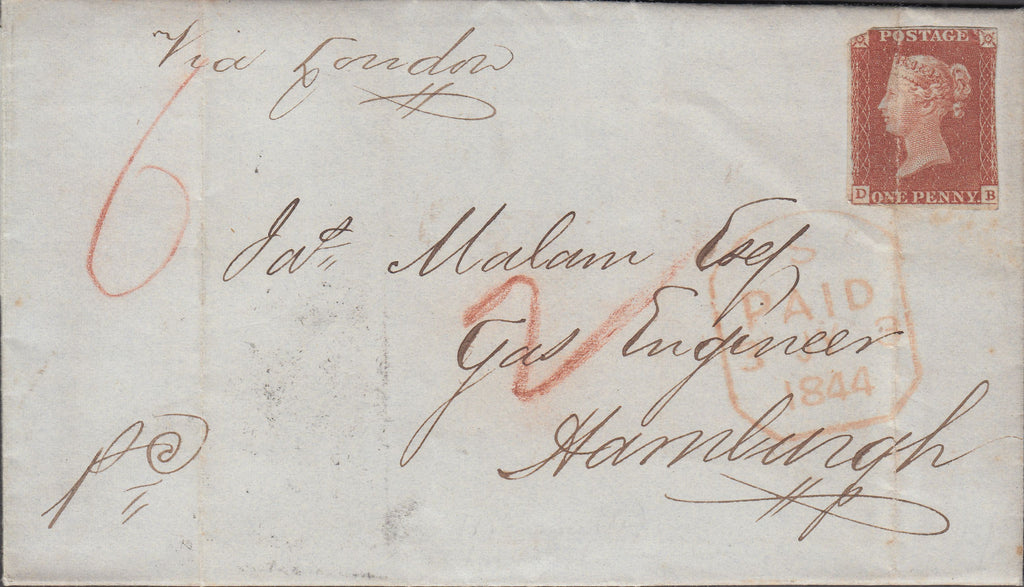 Via London
POSTAGE
ONE PENNY
D B
6
Jas. Malam Esq
2
Gas Engineer
Hamburgh
S
PAID
1844
pd